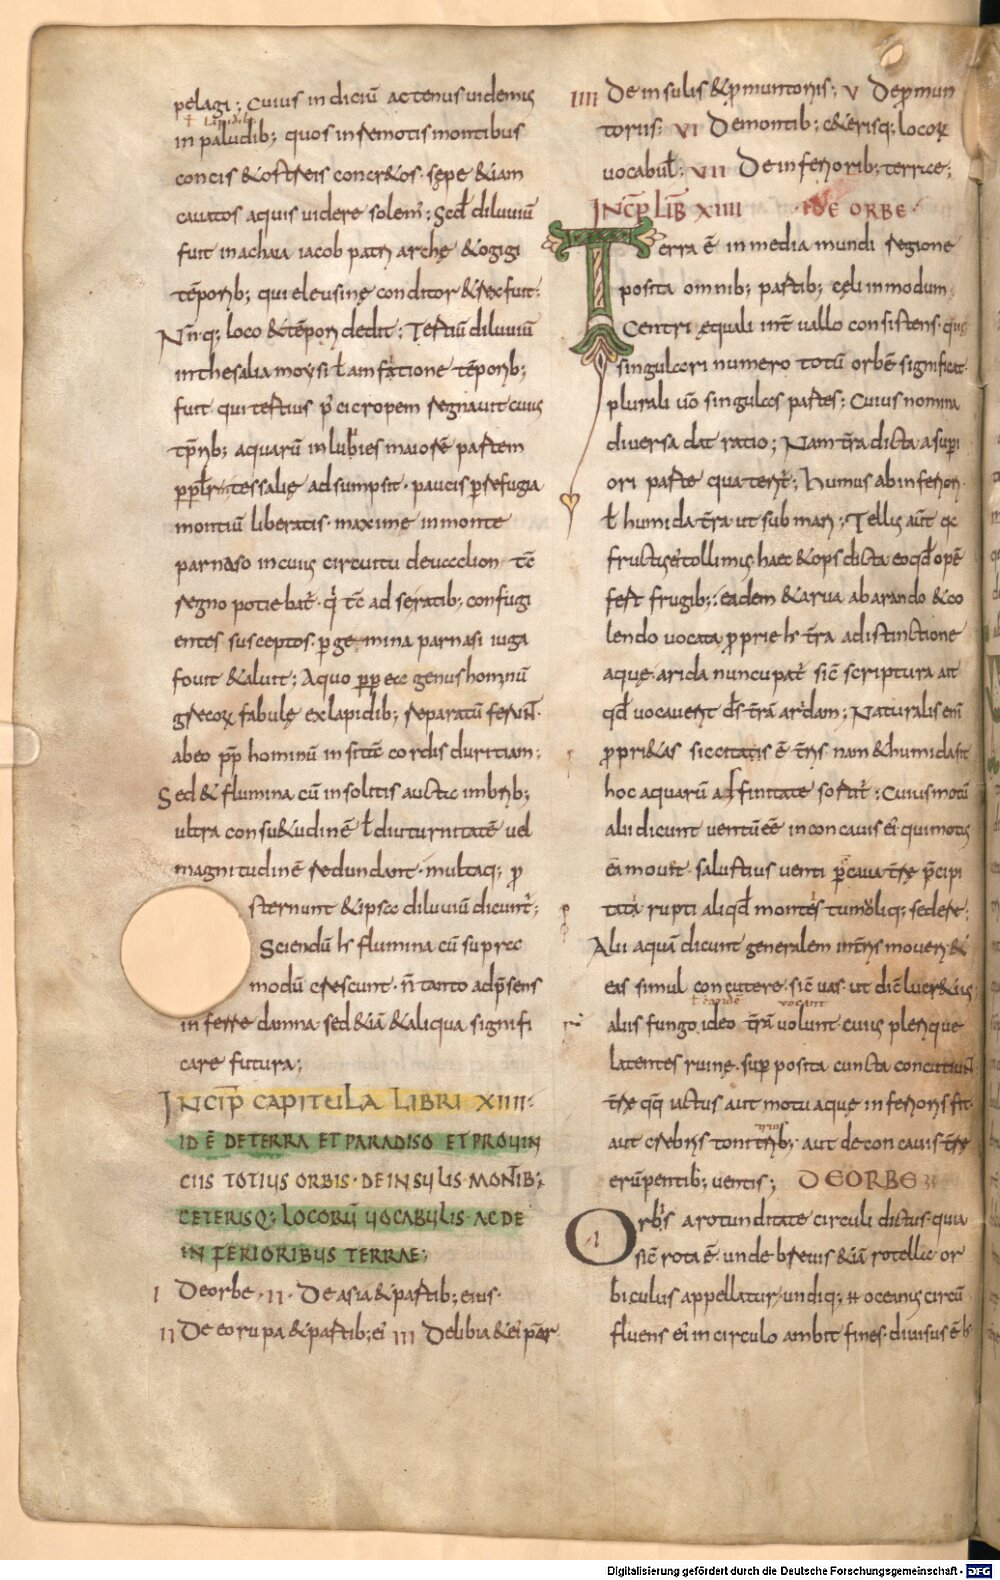 pelagi; Cuius indiciū actenus uidemus
in paludib; quos in remotis montibus
concis & ostreis concr&os· sępe &iam
cauatos aquis uidere solem'; Scđ diluuiū
fuit in achaia iacob patri archę & ogigi
tēporib; qui eleusinę conditor & rex fuit;
Nrīq; loco & tēpori dedit; Tertiū diluuiū
in thesalia moysi ł amfrationę tēporib;
fuit qui tertius p' cicropem regnauit cuius
tprīb; aquarū inlubies maiorē partem
pplr tessalię adsumpsit· paucis p refugia
montiū liberatis· maxime in monte
parnaso in cuius circuitu deucalion tc̄
regno potiebat'· q' tc̄ ad se ratib; confugi
entes susceptos· p gemina parnasi iuga
fouit & aluit; A quo ppea genus hominū
grecoꝝ fabulę ex lapidib; reparatū ferunt·
ab eo pp hominū insitā cordis duritiam;
Sed & flumina cū insolitis aucta imbrib;
ultra consu&udinē ł diuturnitatē uel
magnitudinē redundant· multaq; p
sternunt & ipsa diluuiū dicunt';
Sciendū h flumina cū supra
modū crescunt· n̄ tanto ad p̄sens
inferre damna sed &iā & aliqua signifi
care futura;
INCIP̄ CAPITULA LIBRI XIIII·
ID Ē DE TERRA ET PARADISO ET PROUIN
CIIS TOTIUS ORBIS· DE INSULIS MONTIB;
CETERISQ; LOCORŪ UOCABULIS· AC DE
INFERIORIBUS TERRAE;
I De orbe· II· De asia & partib; eius·
II De eorupa & partib; ei' III De libia & ei' par
IIII De insulis & pmuntoriis; V De pmun
toriis; VI De montib; c&erisq; locoꝝ
uocabuł; VII De inferiorib; terrae;
INCP̄ LIB XIIII · I DE ORBE ·
Terra ē in media mundi regione
posita omnib; partib; cęli in modum
Centri ęquali int uallo consistens· quę
singulari numero totū orbē significat
plurali uō singulas partes; Cuius nomina
diuersa dat ratio; Nam tr̄a dicta a supi
ori parte qua terit'; Humus ab inferiori
ł humida tr̄a ut sub mari; Tellis aūt qa
fructus ei' tollimus· haec & ops dicta eo qđ opē
fert frugib; eadem & arua ab arando & co
lendo uocata proprie h tr̄a a distinctione
aquę· arida nuncupat' sic̄ scriptura ait
qđ uocauerit đs tr̄ā aridam; Naturalis eni
propri&as siccitatis ē t̄rīs nam & humida sit
hoc aquarū affinitate sortit'; Cuius motū
alii dicunt uentū eē in concauis ei' qui motus
eā mouit· salustius uenti p caua t̄rę p̄cipi
tatā rupti aliqđ montes tumoliq; sedere;
Alii aquā dicunt generalem in t̄rīs moueri &
eas simul concutere· sic̄ uas· ut dic̄ lucr&ius
ł eandē uocant
aliis fungo ideo tr̄ā uolunt· cuius plerique
latentes ruinę· sup posita cuncta concutiunt
t̄rę qq̄ iactus aut motu aquę inferioris fit·
aut crebris tonitrib; aut de concauis t̄rę
erūpentib; uentis; DE ORBE
Orbis a rotunditate circuli dictus· quia
sic̄ rota ē· unde breuis &iā rotella or
biculus appellatur· undiq; H oceanus circū
fluens ei' in circulo ambit fines· diuisus ē h
Digitalisierung gefördert durch die Deutsche Forschungsgemeinschaft - DFG